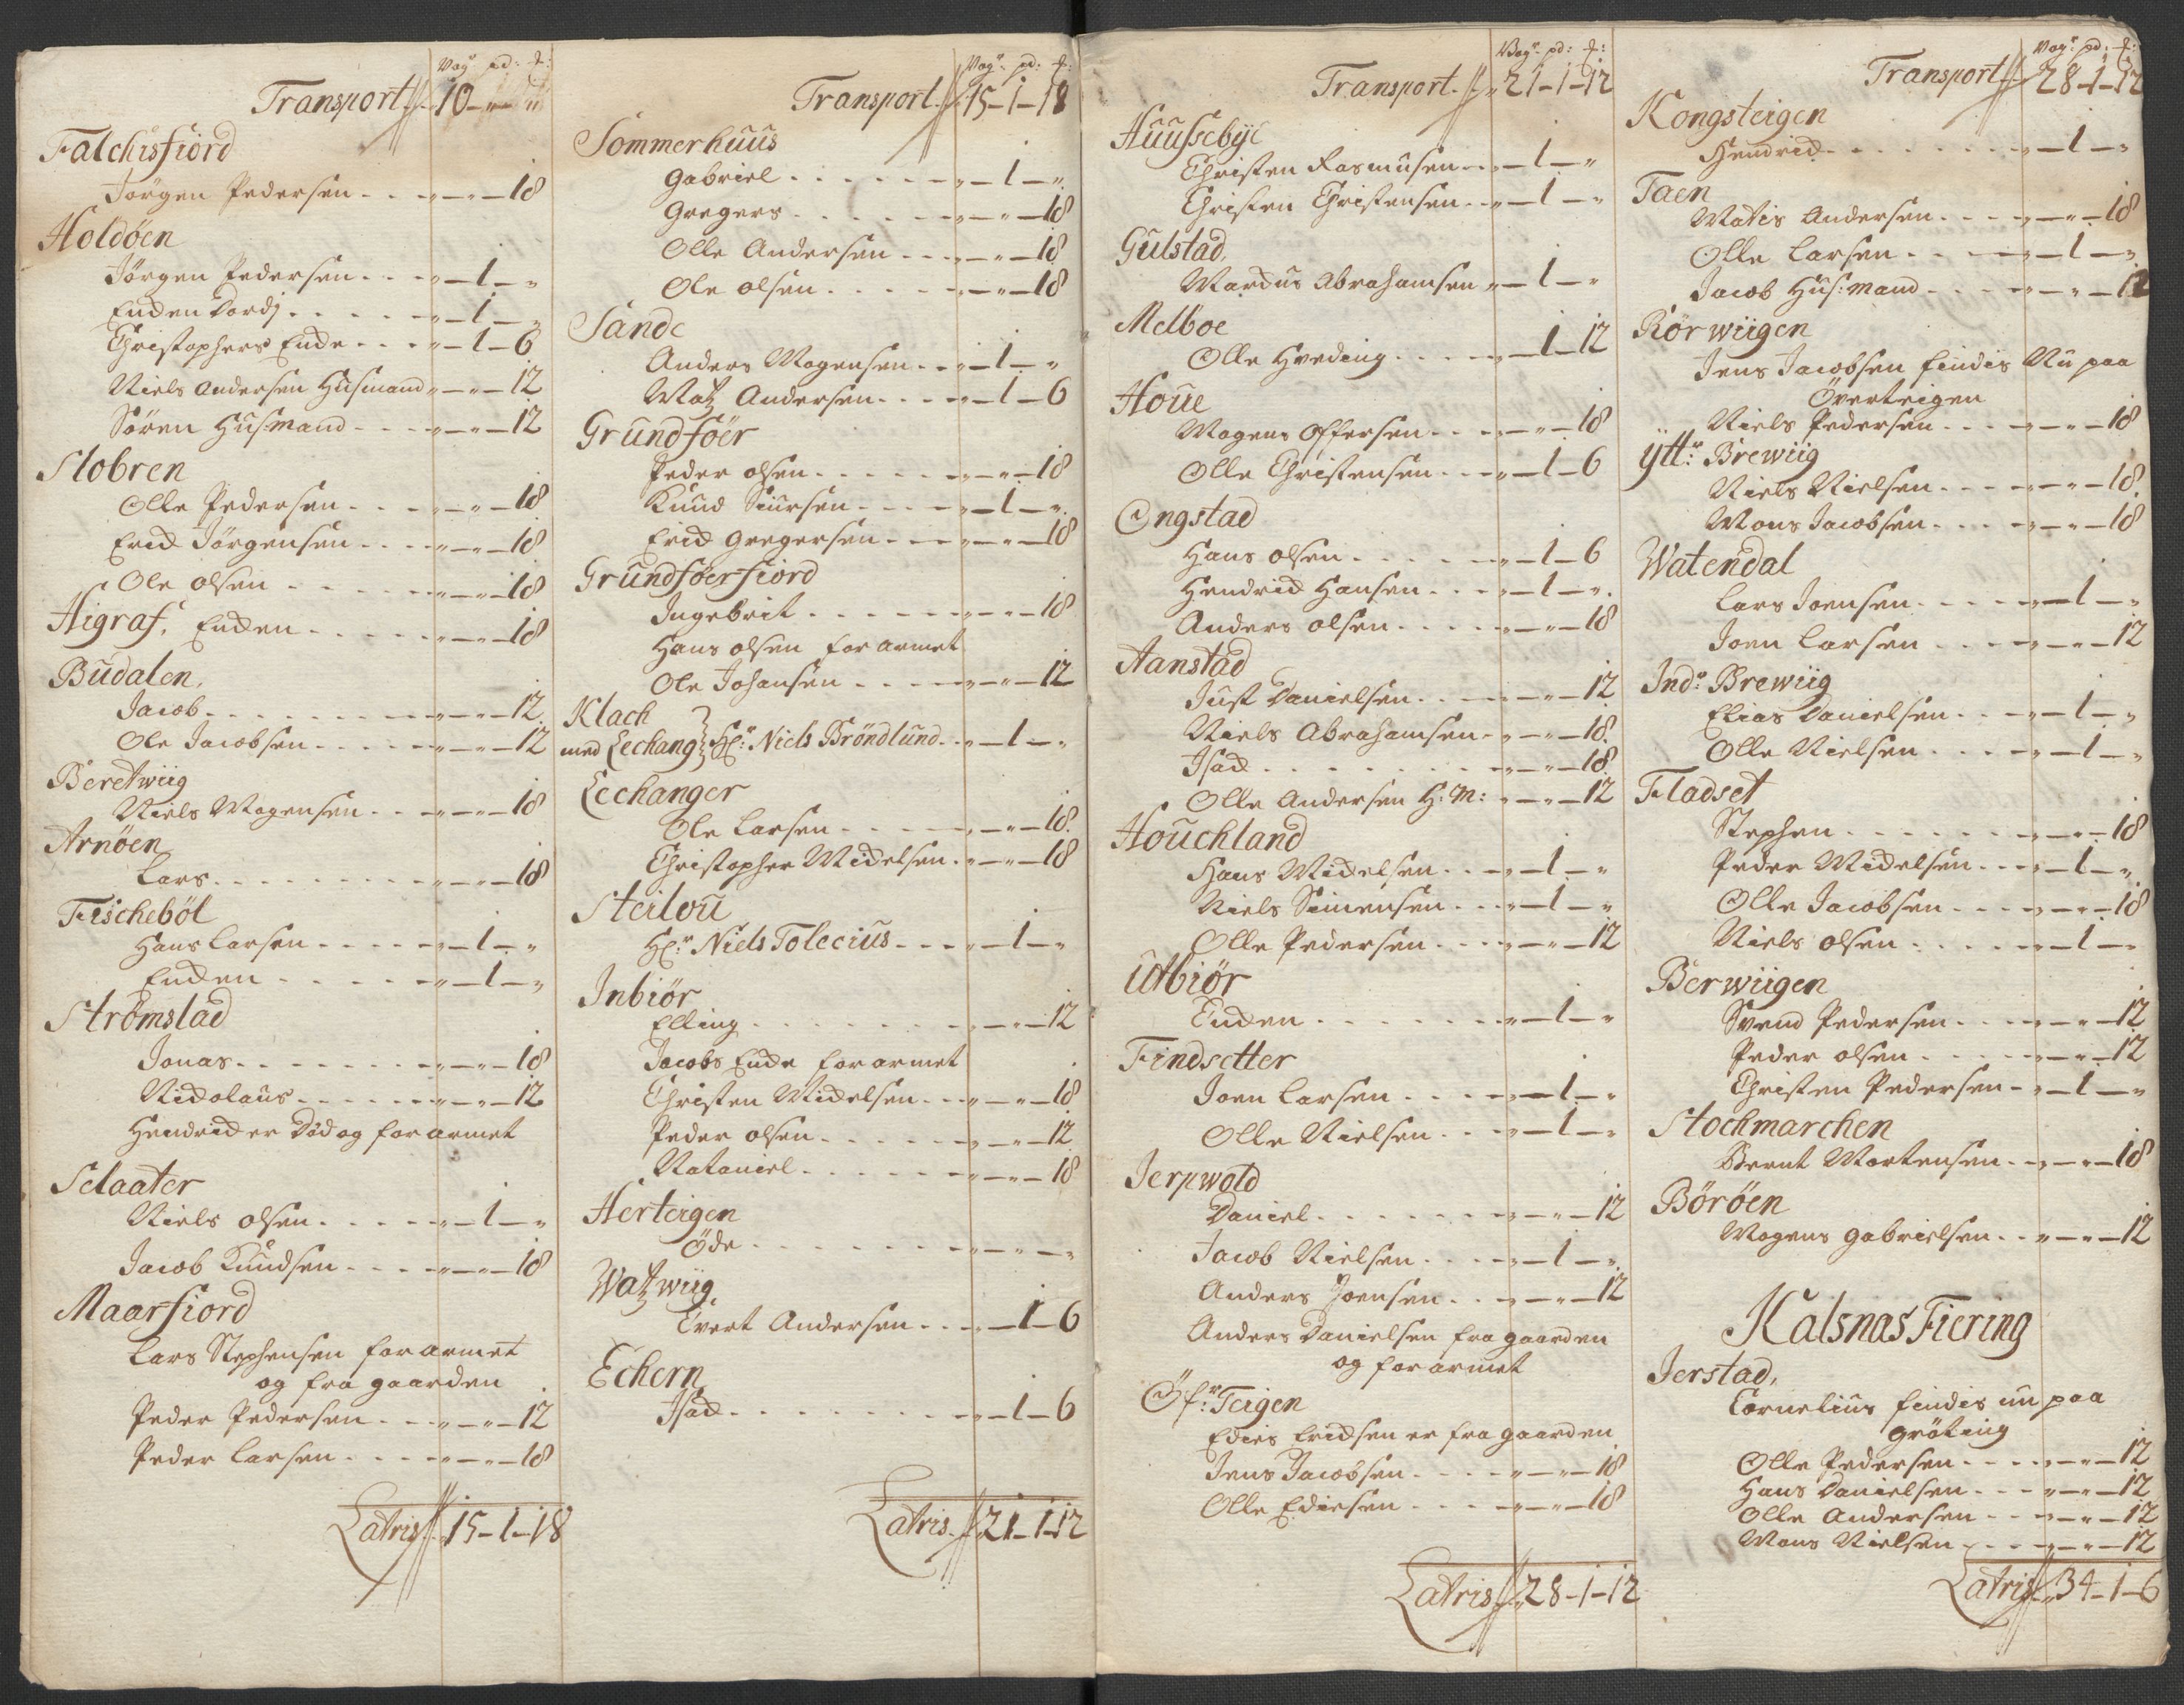 Vog^r pd: ℔:
Transport 10 - " - "
Falchisfiord
Jørgen Pedersen . . . " - " - 18
Holdøen
Jørgen Pedersen . . . " - 1 - "
Enchen Dordj . . . . " - 1 - "
Christophers Enche . . . " - 1 - 6
Niels Andersen Husmand " - " - 12
Søren Husmand . . . " - " - 12
Slobren
Olle Pedersen . . . " - " - 18
Erich Jørgensen . . . " - " - 18
Ole olsen . . . . " - " - 18
Higraf, Enchen . . . . " - " - 18
Budalen,
Jacob . . . . . " - " - 12
Ole Jacobsen . . . . " - " - 12
Beretwiig
Niels Mogensen . . . " - " - 18
Arnøen
Lars . . . . . . " - " - 18
Fischebøl
Hans Larsen . . . . " - 1 - "
Enchen . . . . . " - 1 - "
Strømstad
Jonas . . . . . " - " - 18
Nicholaus . . . . " - " - 12
Hendrich er Død og forarmet
Selaater
Niels olsen . . . . " - 1 - "
Jacob Knudsen . . . " - " - 18
Maarfiord
Lars Stephensen forarmet
og fra gaarden
Peder Pedersen . . . " - " - 12
Peder Larsen . . . . " - " - 18
Latris 15 - 1 - 18
Vog^r pd: ℔:
Transport 15 - 1 - 18
Sommerhuus
Gabriel . . . . . " - 1 - "
Gregers . . . . . " - " - 18
Olle Andersen . . . " - " - 18
Ole olsen . . . . . " - " - 18
Sande
Anders Mogensen . . " - 1 - "
Matz Andersen . . . " - 1 - 6
Grundføer
Peder olsen . . . . " - " - 18
Knud Siursen . . . " - 1 - "
Erich Gregersen . . . " - " - 18
Grundføerfiord
Ingebrit . . . . . " - " - 18
Hans olsen forarmet
Ole Johansen . . . . " - " - 12
Klach
med Eechang } Hr: Niels Brøndlund . . " - 1 - "
Eechanger
Ole Larsen . . . . " - " - 18
Christopher Michelsen . " - " - 18
Steilou
Hr: Niels Tolecius . . . " - 1 - "
Inbiør
Elling . . . . . . " - " - 12
Jacobs Enche forarmet
Christen Michelsen . . " - " - 18
Peder olsen . . . . . " - " - 12
Nataniel . . . . . " - " - 18
Herteigen
Øde . . . . . . " - " - "
Watzwiig,
Evert Andersen . . . " - 1 - 6
Echern
Isach . . . . . . " - 1 - 6
Latris 21 - 1 - 12
Vog^r pd: ℔:
Transport 21 - 1 - 12
Huussebye
Christen Rasmusen . . " - 1 - "
Christen Christensen . . " - 1 - "
Gulstad,
Marchus Abrahamsen " - 1 - "
Melboe
Olle Hveding . . . . " - 1 - 12
Houe
Mogens Offersen . . . " - " - 18
Olle Christensen . . . " - 1 - 6
Engstad
Hans olsen . . . . . " - 1 - 6
Hendrich Hansen . . . " - 1 - "
Anders olsen . . . . " - " - 18
Aanstad
Just Danielsen . . . " - " - 12
Niels Abrahamsen . " - " - 18
Isach . . . . . . " - " - 18
Olle Andersen H: M: " - " - 12
Houchland
Hans Michelsen . . . " - 1 - "
Niels Simensen . . . " - 1 - "
Olle Pedersen . . . . " - " - 12
Utbiør
Enchen . . . . . " - 1 - "
Findsetter
Joen Larsen . . . . " - 1 - "
Olle Nielsen . . . . " - 1 - "
Jerpwold
Daniel . . . . . . " - " - 12
Jacob Nielsen . . . . " - 1 - "
Anders Joensen . . . " - " - 12
Anders Danielsen fra gaarden
og forarmet
Øf^r: Teigen
Edies Erichsen er fra gaarden
Jens Jacobsen . . . . " - " - 18
Olle Ediesen . . . . " - " - 18
Latris 28 - 1 - 12
Vog^r pd: ℔:
Transport 28 - 1 - 12
Kongsteigen
Hendrich . . . . . . " - 1 - "
Taen
Matis Andersen . . . " - " - 18
Olle Larsen . . . . " - 1 - "
Jacob Hus:mand . . . " - " - 12
Rørwiigen
Jens Jacobsen findis Nu paa
Øverteigen
Niels Pedersen . . . " - " - 18
ytt^r: Brewiig
Niels Nielsen . . . " - " - 18
Mons Jacobsen . . . " - " - 18
Watendal
Lars Joensen . . . . " - 1 - "
Joen Larsen . . . . " - " - 12
Ind^r: Brewiig
Elias Danielsen . . . " - 1 - "
Olle Nielsen . . . . " - 1 - "
Fladset
Stephen . . . . . . " - " - 18
Peder Michelsen . . . " - 1 - "
Olle Jacobsen . . . . " - " - 18
Niels olsen . . . . . " - 1 - "
Berwiigen
Svend Pedersen . . . " - " - 12
Peder olsen . . . . . " - " - 12
Christen Pedersen . . " - 1 - "
Stochmarchen
Bernt Mortensen . . " - " - 18
Børøen
Mogens Gabrielsen . . " - " - 12
Kalsnas Fiering
Jerstad,
Cornelius findis nu paa
grøting
Olle Pedersen . . . . " - " - 12
Hans Danielsen . . . " - " - 12
Olle Andersen . . . " - " - 12
Mons Nielsen . . . . " - " - 12
Latris 34 - 1 - 6